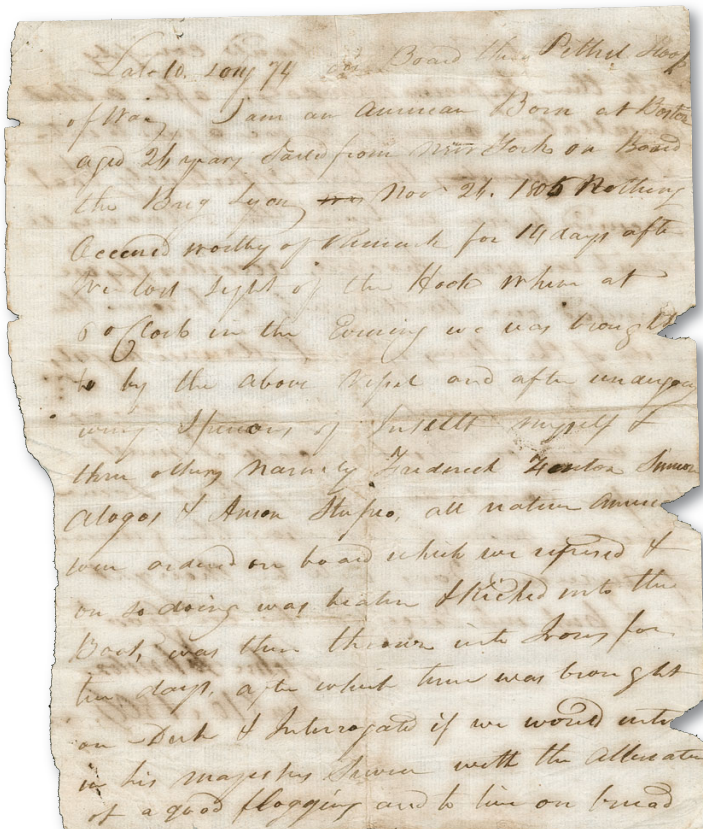 Lat 10. Long 74 on Board the Pethel Sloop
of War, I am an American Born at Boston
aged 26 years Sailed from New York on Board
the Brig Lyon Nov 26. 1805 Nothing
occured worthy of Remark for 14 days after
We lost Sight of the Hook when at
8 oClock in the Evening we was brought
to by the above vessel and after undergo
wing of Insult myself &
three others namely Frederick
& all native
were ordered on board which we refused &
on so doing was beaten & Kicked into the
Boat, was then thrown into Irons for
ten days, after which time was brought
on Deck & Interrogated if we would enter
in his majestys Service with the
of a good flogging and to live on bread